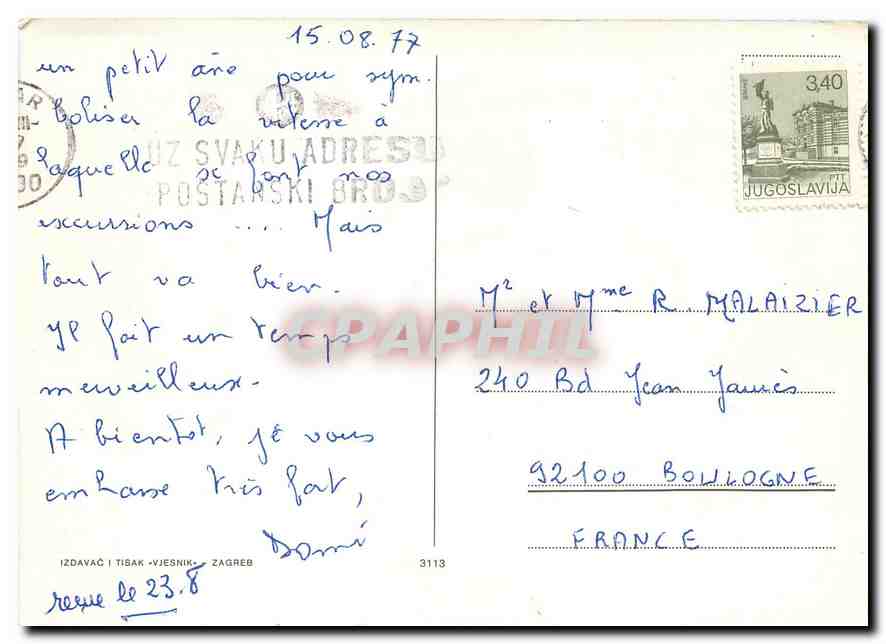 15.08.77
un petit âne pour sym-
boliser la vitesse à
laquelle se font nos
excursions .... Mais
tout va bien.
Il fait un temps
merveilleux.
A bientôt, je vous
embrasse très fort,
Domi
IZDAVAČ I TISAK «VJESNIK» ZAGREB
3113
reçue le 23.8
UZ SVAKU ADRESU
POŠTANSKI BROJ
3,40
PTT
JUGOSLAVIJA
Mr et Mme R. MALAIZIER
240 Bd Jean Jaurès
92100 BOULOGNE
FRANCE
CPAPHIL